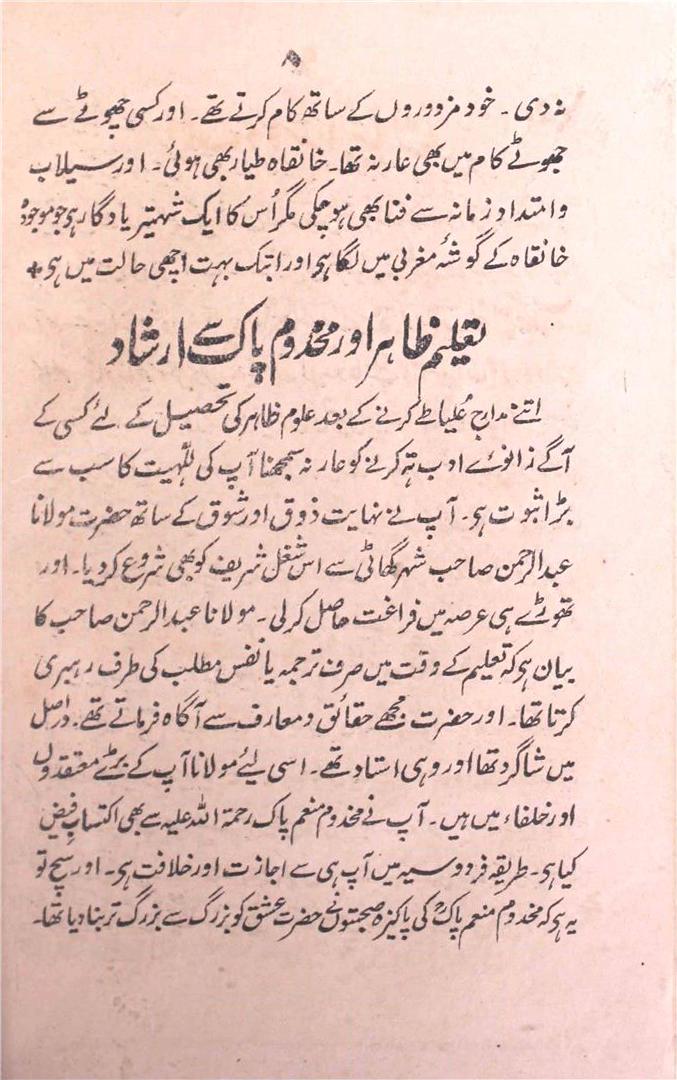 ۸
نہ دی ۔ خود مزدوروں کے ساتھ کام کرتے تھے ۔ اور کسی چھوٹے سے
چھوٹے کام میں بھی عار نہ تھا ۔ خانقاہ طیار بھی ہوئی ۔ اور سیلاب
وامتداد زمانہ سے فنا بھی ہوچکی مگر اُس کا ایک شہتیر یادگار ہی جو موجودہ
خانقاہ کے گوشۂ مغربی میں لگا ہی اور ابتک بہت اچھی حالت میں ہی +
تعلیم ظاہر اور مخدوم پاک سے ارشاد
اتنے مدارج عُلیا طے کرنے کے بعد علوم ظاہر کی تحصیل کے لئے کسی کے
آگے زانوئے ادب تہ کرنے کو عار نہ سمجھنا آپ کی للّٰہیت کا سب سے
بڑا ثبوت ہی ۔ آپ نے نہایت ذوق اور شوق کے ساتھ حضرت مولانا
عبدالرحمن صاحب شہر گھاٹی سے اس شغل شریف کو بھی شروع کردیا ۔ اور
تھوڑے ہی عرصہ میں فراغت حاصل کرلی ۔ مولانا عبدالرحمن صاحب کا
بیان ہی کہ تعلیم کے وقت میں صرف ترجمہ یا نفس مطلب کی طرف رہبری
کرتا تھا ۔ اور حضرت مجھے حقائق و معارف سے آگاہ فرماتے تھے ۔ دراصل
میں شاگرد تھا اور وہی استاد تھے ۔ اسی لئے مولانا آپ کے بڑے معتقدوں
اور خلفاء میں ہیں ۔ آپ نے مخدوم منعم پاک رحمۃ اللہ علیہ سے بھی اکتسابِ فیض
کیا ہی ۔ طریقہ فردوسیہ میں آپ ہی سے اجازت اور خلافت ہی ۔ اور سچ تو
یہ ہی کہ مخدوم منعم پاکؒ کی پاکیزہ صحبتوں نے حضرت عشق کو بزرگ سے بزرگ تر بنا دیا تھا ۔